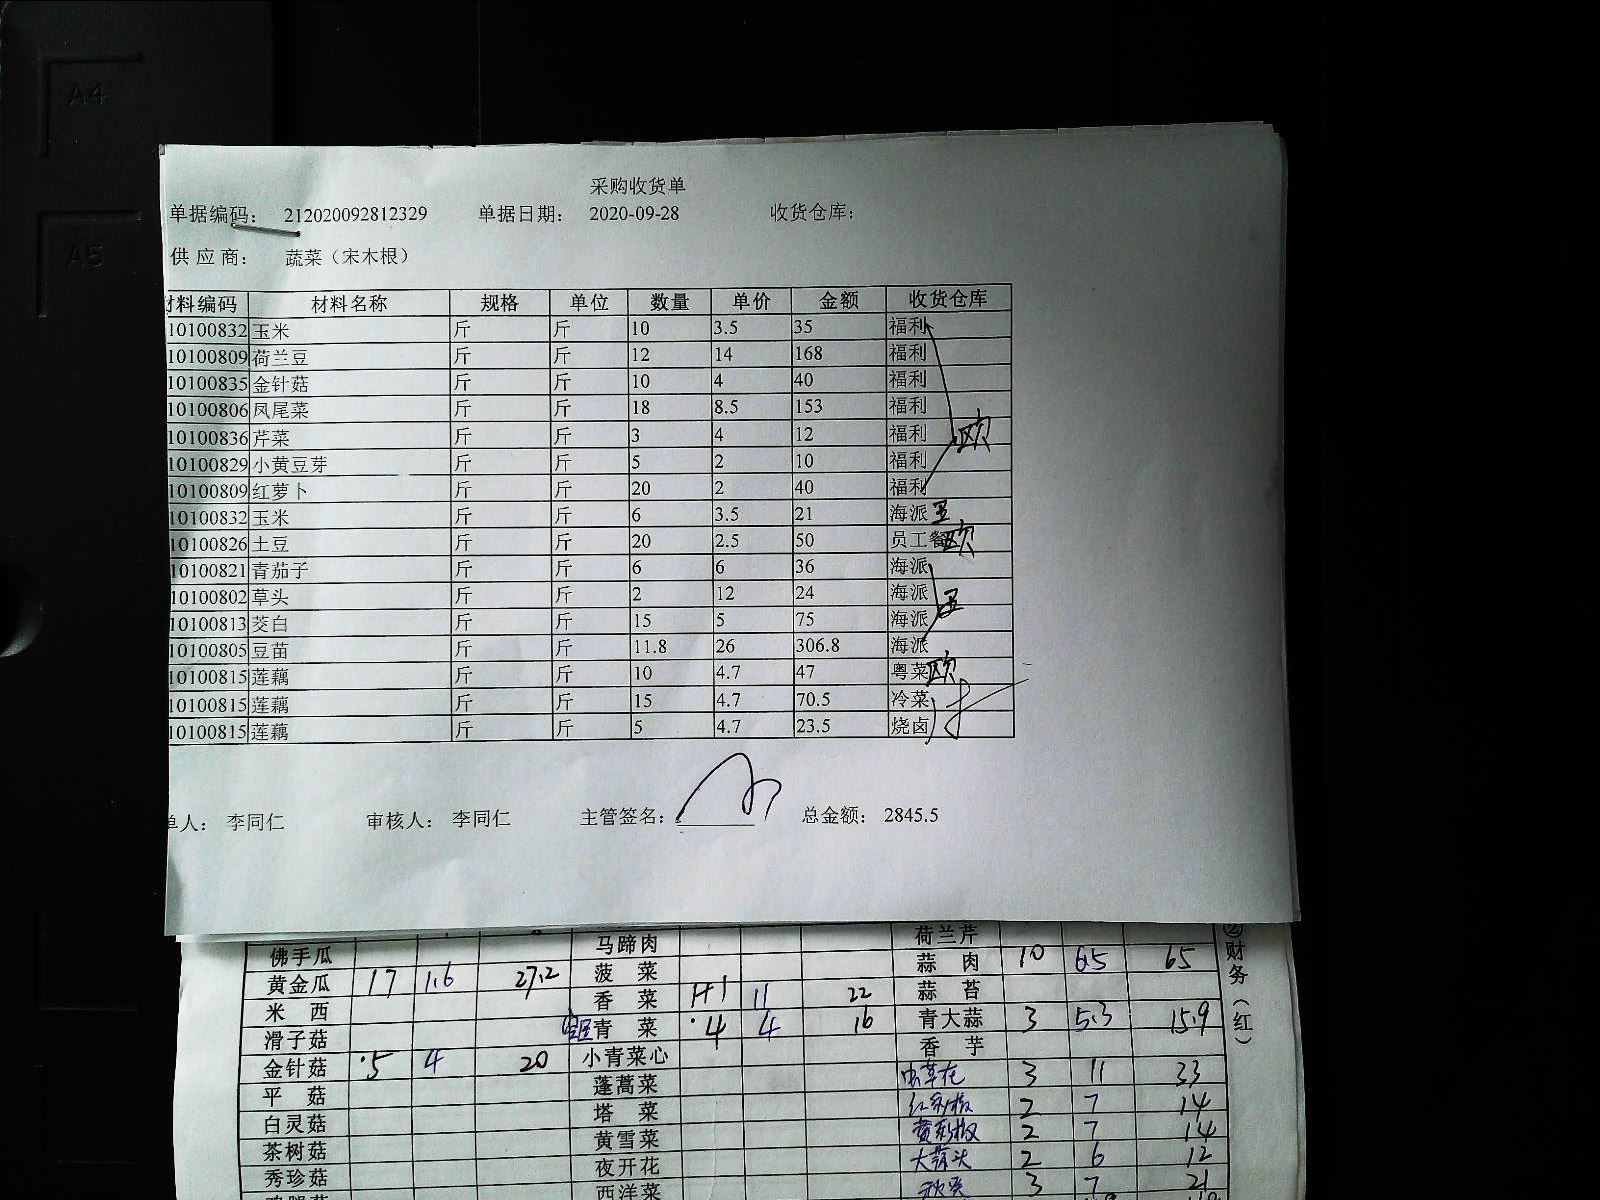 A4
A5
采购收货单
单据编码： 212020092812329 单据日期： 2020-09-28 收货仓库：
供应商： 蔬菜（宋木根）
材料编码 材料名称 规格 单位 数量 单价 金额 收货仓库
10100832 玉米 斤 斤 10 3.5 35 福利
10100809 荷兰豆 斤 斤 12 14 168 福利
10100835 金针菇 斤 斤 10 4 40 福利
10100806 凤尾菜 斤 斤 18 8.5 153 福利
10100836 芹菜 斤 斤 3 4 12 福利 欧
10100829 小黄豆芽 斤 斤 5 2 10 福利
10100809 红萝卜 斤 斤 20 2 40 福利
10100832 玉米 斤 斤 6 3.5 21 海派
10100826 土豆 斤 斤 20 2.5 50 员工餐 欧
10100821 青茄子 斤 斤 6 6 36 海派
10100802 草头 斤 斤 2 12 24 海派
10100813 茭白 斤 斤 15 5 75 海派
10100805 豆苗 斤 斤 11.8 26 306.8 海派
10100815 莲藕 斤 斤 10 4.7 47 粤菜 欧
10100815 莲藕 斤 斤 15 4.7 70.5 冷菜
10100815 莲藕 斤 斤 5 4.7 23.5 烧卤
单人： 李同仁 审核人： 李同仁 主管签名： 总金额： 2845.5
佛手瓜 马蹄肉 荷兰芹
黄金瓜 17 1.6 27.2 菠菜 蒜肉 10 6.5 65
米西 香菜 1+1 11 22 蒜苔
滑子菇 青菜 4 4 16 青大蒜 3 5.3 15.9
金针菇 5 4 20 小青菜心 香芋
平菇 蓬蒿菜 虫草花 3 11 33
白灵菇 塔菜 红彩椒 2 7 14
茶树菇 黄雪菜 黄彩椒 2 7 14
秀珍菇 夜开花 大蒜头 2 6 12
西洋菜 3 7 21
②财务（红）